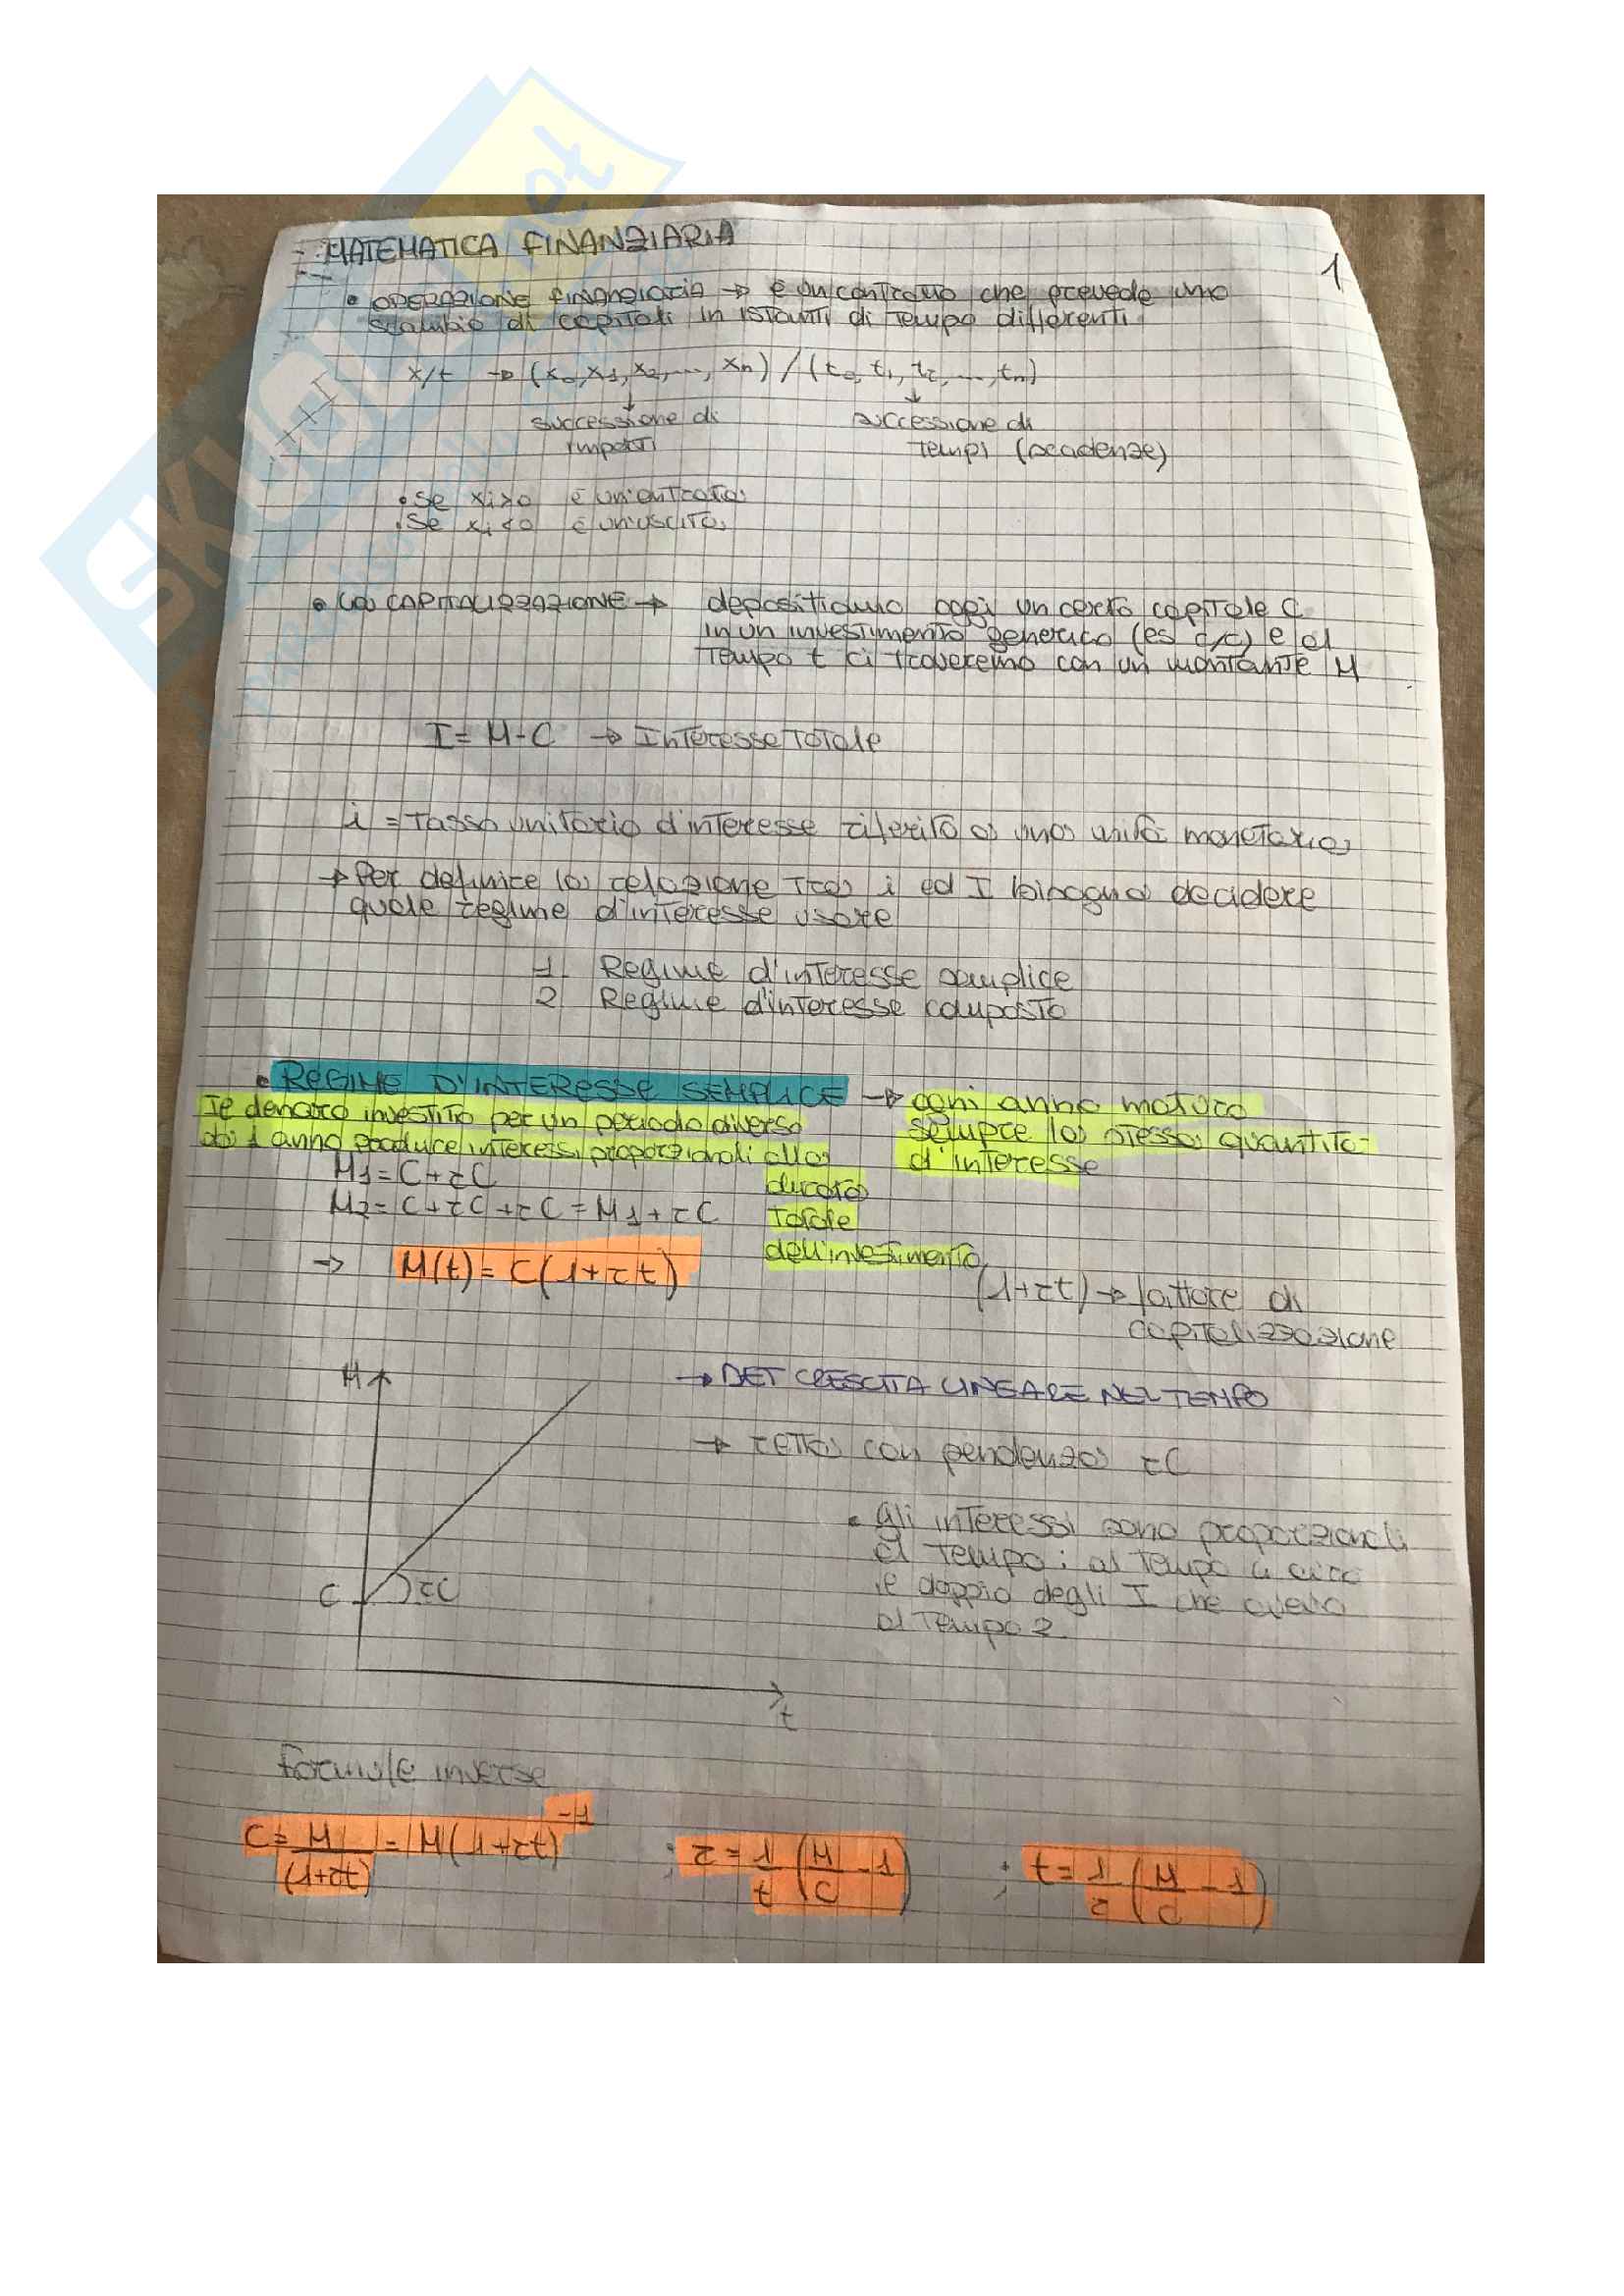 MATEMATICA FINANZIARIA
1
• OPERAZIONE FINANZIARIA → è un contratto che prevede uno
scambio di capitali in istanti di tempo differenti
x/t → (x0, x1, x2, ..., xn) / (t0, t1, t2, ..., tn)
↓ ↓
successione di successione di
importi tempi (scadenze)
• Se xi>0 è un'entrata
• Se xi<0 è un'uscita
• La CAPITALIZZAZIONE → depositiamo oggi un certo capitale C
in un investimento generico (es c/c) e al
tempo t ci troveremo con un montante M
I = M - C → Interesse totale
i = Tasso unitario d'interesse riferito a una unità monetaria
→ Per definire la relazione tra i ed I bisogna decidere
quale regime d'interesse usare
1. Regime d'interesse semplice
2. Regime d'interesse composto
• REGIME D'INTERESSE SEMPLICE → ogni anno maturo
sempre la stessa quantità
d'interesse
Il denaro investito per un periodo diverso
da 1 anno produce interessi proporzionali alla
durata
totale
dell'investimento
M1 = C + rC
M2 = C + rC + rC = M1 + rC
→ M(t) = C(1+rt)
(1+rt) → fattore di
capitalizzazione
M
→ DET CRESCITA LINEARE NEL TEMPO
→ retta con pendenza rC
• gli interessi sono proporzionali
al tempo: al tempo 4 avrò
il doppio degli I che avevo
al tempo 2
C rC
t
Formule inverse
C = M/(1+rt) = M(1+rt)^-1 ; r = 1/t (M/C - 1) ; t = 1/r (M/C - 1)